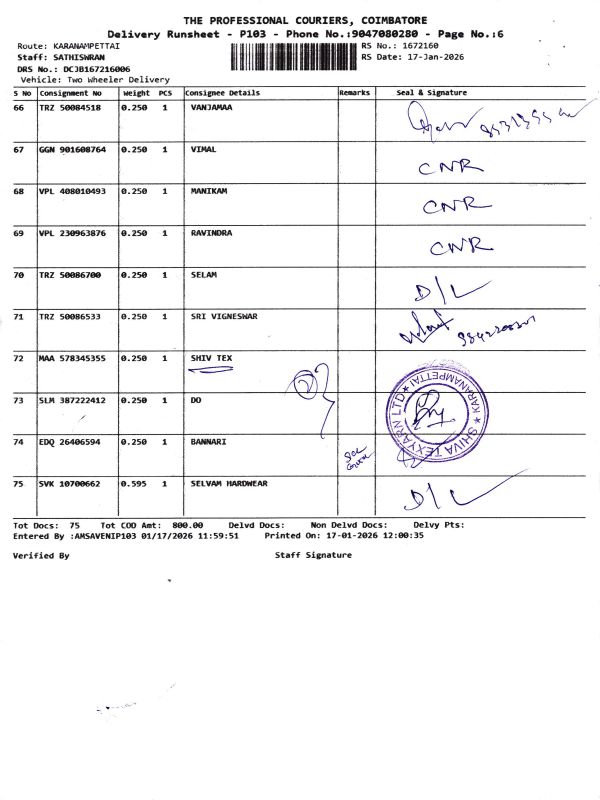 THE PROFESSIONAL COURIERS, COIMBATORE
Delivery Runsheet - P103 - Phone No.:9047080280 - Page No.:6
Route: KARANAMPETTAI RS No.: 1672160
Staff: SATHISWRAN RS Date: 17-Jan-2026
DRS No.: DCJB167216006
Vehicle: Two Wheeler Delivery
S No Consignment No Weight PCS Consignee Details Remarks Seal & Signature
66 TRZ 50084518 0.250 1 VANJAMAA
67 GGN 901608764 0.250 1 VIMAL CNR
68 VPL 408010493 0.250 1 MANIKAM CNR
69 VPL 230963876 0.250 1 RAVINDRA CNR
70 TRZ 50086700 0.250 1 SELAM D/L
71 TRZ 50086533 0.250 1 SRI VIGNESWAR
72 MAA 578345355 0.250 1 SHIV TEX
73 SLM 387222412 0.250 1 DO
SHIVA TEXYARN LTD ★ KARANAMPETTAI ★
74 EDQ 26406594 0.250 1 BANNARI
75 SVK 10700662 0.595 1 SELVAM HARDWEAR D/L
Tot Docs: 75 Tot COD Amt: 800.00 Delvd Docs: Non Delvd Docs: Delvy Pts:
Entered By :AMSAVENIP103 01/17/2026 11:59:51 Printed On: 17-01-2026 12:00:35
Verified By Staff Signature